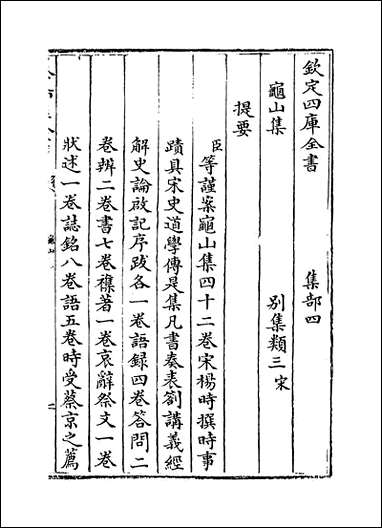 欽定四庫全書 集部四
龜山集 別集類三 宋
提要
臣等謹案龜山集四十二卷宋楊時撰時事
蹟具宋史道學傳是集凡書奏表劄講義經
解史論啟記序跋各一卷語録四卷答問二
卷辨二卷書七卷襍著一卷哀辭祭文一卷
狀述一卷誌銘八卷語五卷時受蔡京之薦